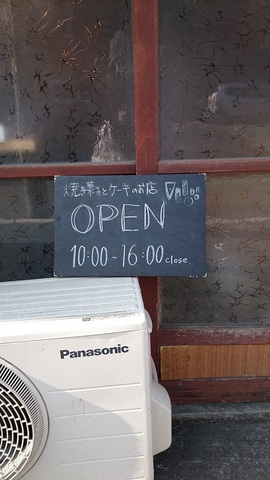 焼き菓子とケーキのお店
OPEN
10:00-16:00 close.
Panasonic